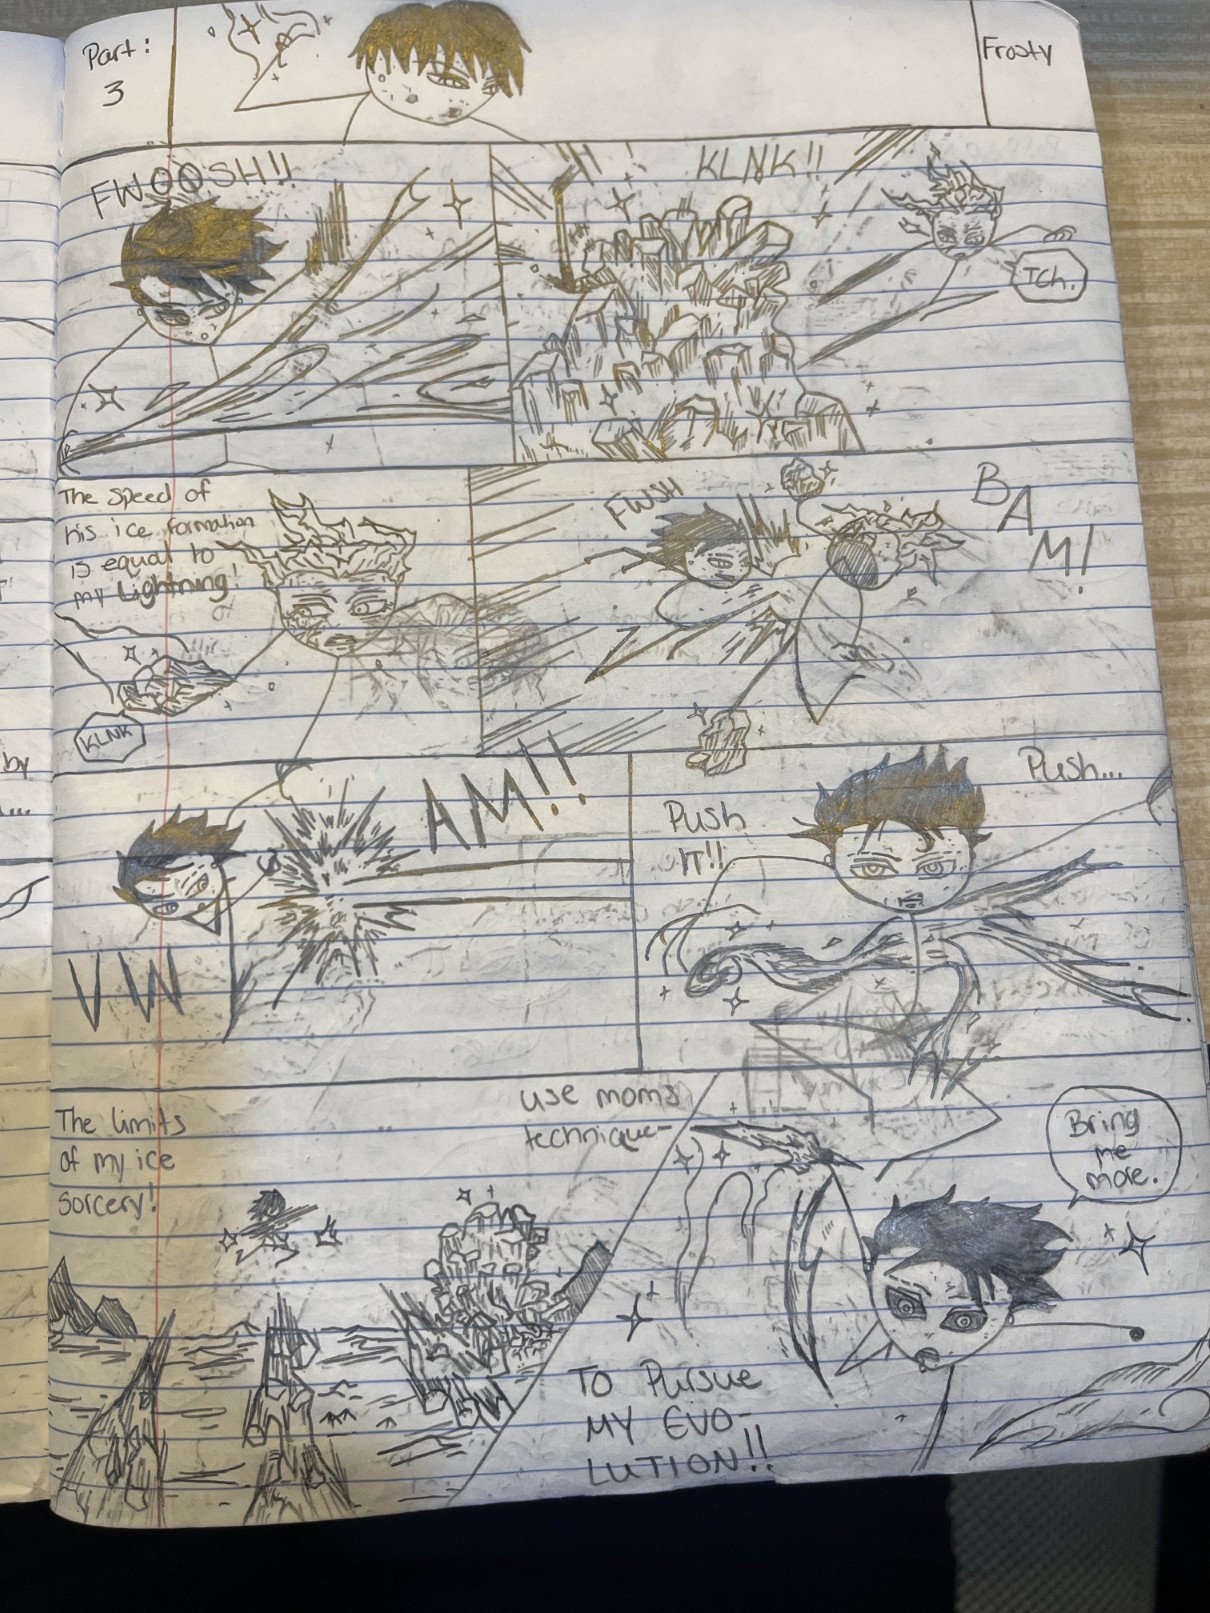 Part:
3
Frosty
FWOOSH!!
KLNK!!
Tch.
The speed of
his ice formation
is equal to
my Lightning!
KLNK
FWSH
BAM!
VW
AM!!
Push
IT!!
Push...
The limits
of my ice
sorcery!
use moms
technique-
Bring
me
more.
TO PURSUE
MY EVO-
LUTION!!
by